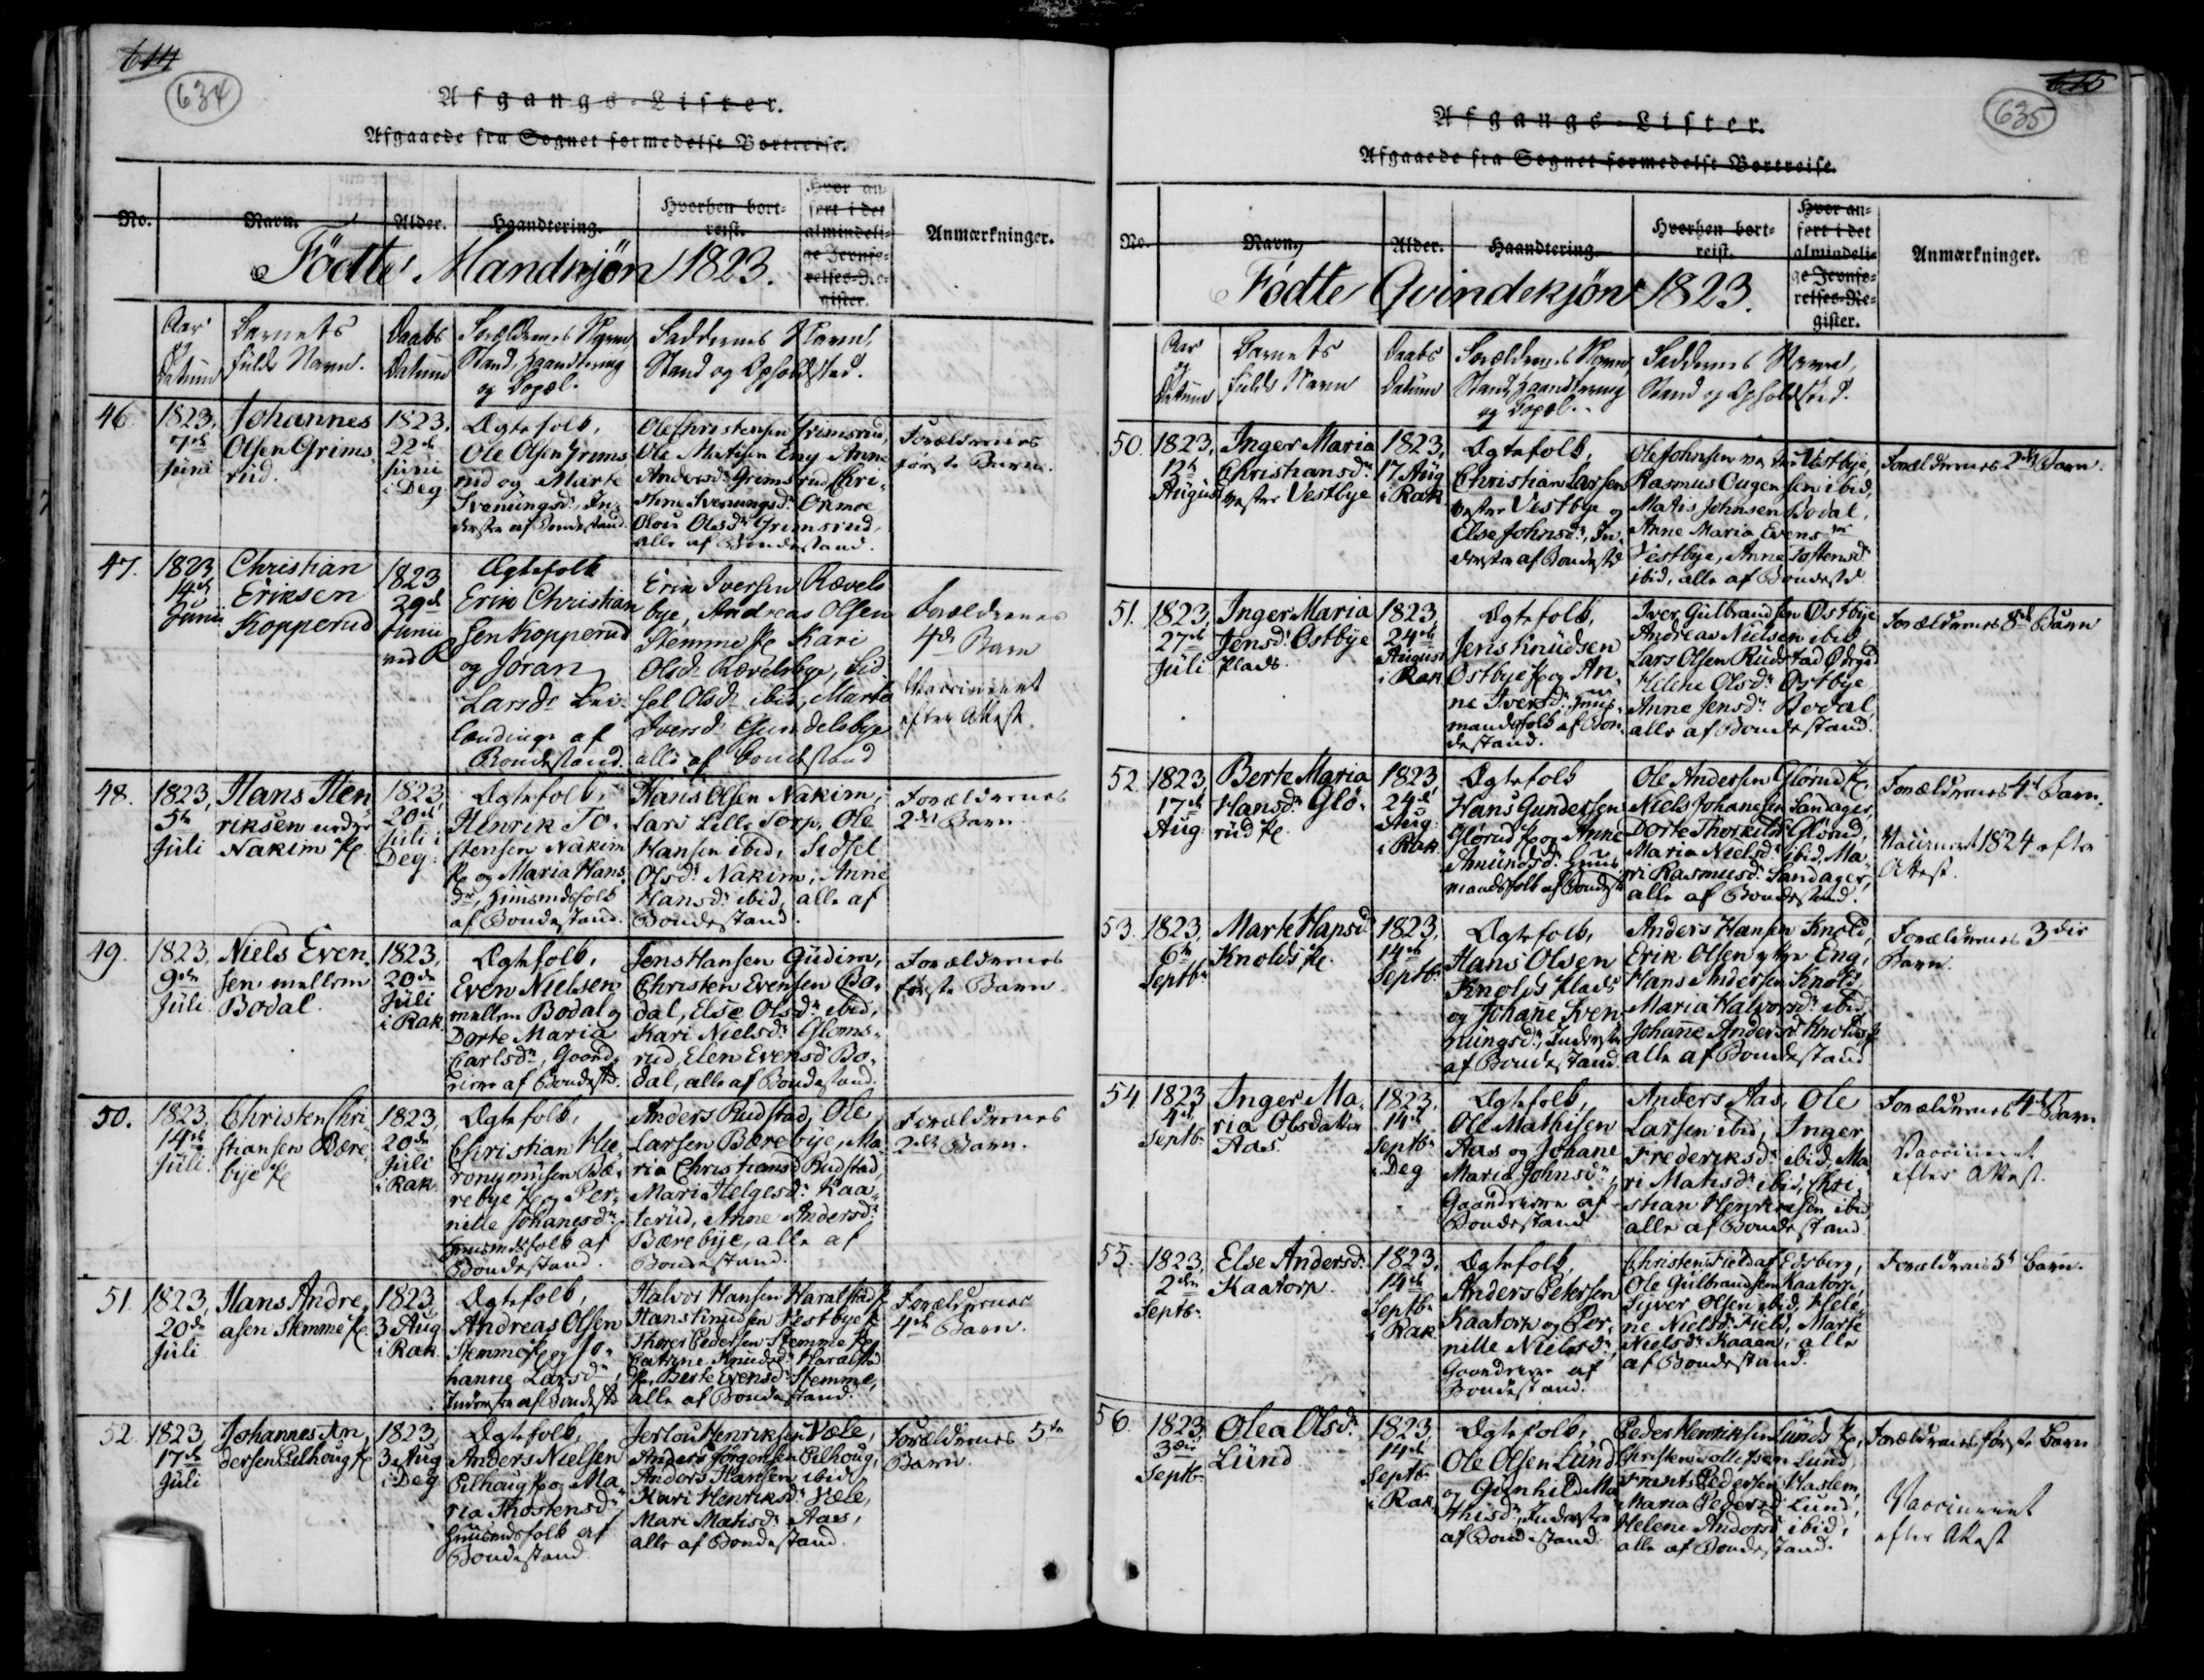 614
634
Afgangs-Lister.
Afgaaede fra Sognet formedelst Bortreise.
No.
Navn.
Alder.
Haandtering.
Hvorhen bort-
reist.
Hvor an-
ført i det
almindeli-
ge Jevnfø-
relses-Re-
gister.
Anmærkninger.
Fødte Mandkjøn 1823.
Aar
og
Datum
Barnets
fulde Navn.
Daabs
Datum
Forældrenes Navne
Stand, Haandtering
og Bopæl.
Faddernes Navne,
Stand og Opholdsted.
46.
1823,
7de
Juni
Johannes
Olsen Grims-
rud.
1823,
22de
Juni
i Deg
Ægtefolk,
Ole Olsen Grims
rud og Marte
Svenungsdr, In-
derster af Bondestand.
Ole Christensen Grimsrud,
Ole Matisen Eng Anne
Andersdr Grimsrud, Chri-
stine Svenungsdr Ormoe
Olsdr Grimsrud,
alle af Bondestand.
Forældrenes
første Barn.
47.
1823
14de
Junii
Christian
Eriksen
Kopperud
1823
29de
Junii
ved R
Ægtefolk
Erik Christian
sen Kopperud
og Joran
Larsdr
af
Bondestand.
Erik Iversen Rævels
bye, Andreas Olsen
Stemme Pl Kari
Olsdr Rævelsbye, Sid
sel Olsdr ibid, Marte
Iversdr Gundelsbye
alle af Bondestand
Forældrenes
4de Barn
Vaccineret
efter Attest.
48.
1823,
5te
Juli
Hans Hen
riksen nedre
Nakim Pl.
1823,
20de
Juli i
Deg.
Ægtefolk,
Henrik To-
stensen Nakim
Pl og Maria Hans
dr, Huusmdsfolk
af Bondestand.
Hans Olsen Nakim,
Lars Lille Torp, Ole
Hansen ibid, Sidsel
Olsdr Nakim, Anne
Hansdr ibid, alle af
Bondestand.
Forældrenes
2det Barn.
49.
1823,
9de
Juli
Niels Even-
sen mellem
Bodal.
1823,
20de
Juli
i Rak
Ægtefolk,
Even Nielsen
mellem Bodal og
Dorte Maria
Carlsdr, Gaard-
eiere af Bondestd.
Jens Hansen Gudim,
Christen Evensen Bo-
dal, Else Olsdr ibid,
Kari Nielsdr Gloms-
rud, Elen Evensd Bo-
dal, alle af Bondestand.
Forældrenes
første Barn.
50.
1823,
14de
Juli.
Christen Chri-
stiansen Bære-
bye Pl
1823,
20de
Juli
i Rak.
Ægtefolk,
Christian Hie-
ronymusen Bæ-
rebye Pl og Per-
nille Johanesdr,
Huusmdsfolk af
Bondestand.
Anders Rudstad, Ole
Larsen Bærebye, Ma-
ria Christiansd Rudstad,
Mari Helgesdr Kaa-
terud, Anne Andersdr
Bærebye, alle af
Bondestand.
Forældrenes
2det Barn.
51.
1823,
20de
Juli
Hans Andre-
asen Stemme Pl.
1823,
3 Aug
i Rak
Ægtefolk,
Andreas Olsen
Stemme Pl og Jo-
hanne Larsdr,
Inderster af Bondestd
Halvor Hansen Haralstad Pl
Hans Knudsen Vestbye Pl
Thorer Pedersen Stemme Pl,
Catrine Knudsdr Haralstad
Pl, Berte Evensd Stemme,
alle af Bondestand.
Forældrenes
4de Barn.
52.
1823
17de
Juli
Johannes An-
dersen Pilhoug Pl
1823,
3 Aug
i Deg
Ægtefolk,
Anders Nielsen
Pilhoug Pl og Ma-
ria Thostensdr
Huusmdsfolk af
Bondestand.
Henriksen Væle,
Anders Jørgensen Pilhoug,
Anders Hansen ibid,
Kari Henriksdr Væle,
Mari Matisdr Aas,
alle af Bondestand.
Forældrenes 5te
Barn.
615
635
Afgangs-Lister.
Afgaaede fra Sognet formedelst Bortreise.
No.
Navn.
Alder.
Haandtering.
Hvorhen bort-
reist.
Hvor an-
ført i det
almindeli-
ge Jevnfø-
relses-Re-
gister.
Anmærkninger.
Fødte Qvindekjøn 1823.
Aar
og
Datum
Barnets
fulde Navn
Daabs
Datum
Forældrenes Navne
Stand, Haandtering
og Bopæl.
Faddernes Navne,
Stand og Opholdsted.
50.
1823,
12te
August
Inger Maria
Christiansdr
vester Vestbye
1823,
17 Aug
i Rak
Ægtefolk,
Christian Larsen
vester Vestbye og
Else Johnsdr, In-
derster af Bondestd
Ole Johnsen vester Vestbye,
Rasmus Ougensen ibid,
Matis Johnsen Bodal,
Anne Maria Evensdr
Vestbye, Anne Tostensdr
ibid, alle af Bondestd
Forældrenes 2det Barn.
51.
1823,
27de
Juli
Inger Maria
Jensdr Østbye
Plads.
1823,
24de
August
i Rak
Ægtefolk,
Jens Knudsen
Østbye Pl og An-
ne Iversdr, Huus-
mandsfolk af Bon-
destand.
Iver Gulbrandsen Østbye
Andreas Nielsen ibid,
Lars Olsen Rudstad Ødegd
Helene Olsdr Østbye
Anne Jensdr Bodal,
alle af Bondestand.
Forældrenes 8de Barn
52.
1823,
17de
Aug.
Berte Maria
Hansdr Glø-
rud Pl.
1823,
24de
Aug.
i Rak
Ægtefolk
Hans Gundersen
Glørud Pl og Anne
Amundsdr Huus-
mandsfolk af Bondestd
Ole Andersen Glørud Pl.
Niels Johanesen Sandager,
Dorte Thorkilsd Glørud,
Maria Nielsdr ibid, Ma-
ri Rasmusd. Sandager,
alle af Bondestand.
Forældrenes 4de Barn.
Vaccineret 1824 efter
Attest.
53.
1823,
6te
Septbr
Marte Hansd
Knolds Pl.
1823,
14de
Septbr
Ægtefolk,
Hans Olsen
Knolds Plads
og Johane Sven
nungsdr, Inderster
af Bondestand
Anders Hansen Knold,
Erik Olsen Eng,
Hans Andersen Knold,
Maria Halvorsdr ibid
Johane Andersd Knolds Pl
alle af Bondestand
Forældrenes 3die
Barn.
54
1823
4de
Septbr
Inger Ma-
ria Olsdatter
Aas.
1823,
14de
Septbr
i Deg
Ægtefolk,
Ole Mathisen
Aas og Johane
Maria Johnsdr,
Gaardeiere af
Bondestand
Anders Aas, Ole
Larsen ibid, Inger
Frederiksdr ibid, Ma
ri Matisdr ibid, Chri-
stian Henriksen ibid,
alle af Bondestand.
Forældrenes 4de Barn
Vaccineret
efter Attest.
55.
1823,
2den
Septbr.
Else Andersdr
Kaatorp.
1823,
14de
Septbr
i Rak
Ægtefolk,
Anders Petersen
Kaatorp og Per-
nille Nielsdr,
Gaardeiere af
Bondestand.
Christen Field af Edsberg,
Ole Gulbrandsen Kaatorp,
Syver Olsen ibid, Hele-
ne Nielsd. Field, Marte
Nielsdr Kaaen, alle
af Bondestand.
Forældrenes 5te Barn.
56.
1823,
3die
Septbr
Olea Olsdr
Lund
1823,
14de
Septbr.
i Rak
Ægtefolk,
Ole Olsen Lund
og Gunhild Ma
thisdr, Inderster
af Bondestand
Peder Henriksen Lunds Pl,
Christen Lund,
Frants Pedersen Haslem,
Maria Pedersd Lund,
Helene Andersd ibid,
alle af Bondestand.
Forældrenes første Barn
Vaccineret
efter Attest